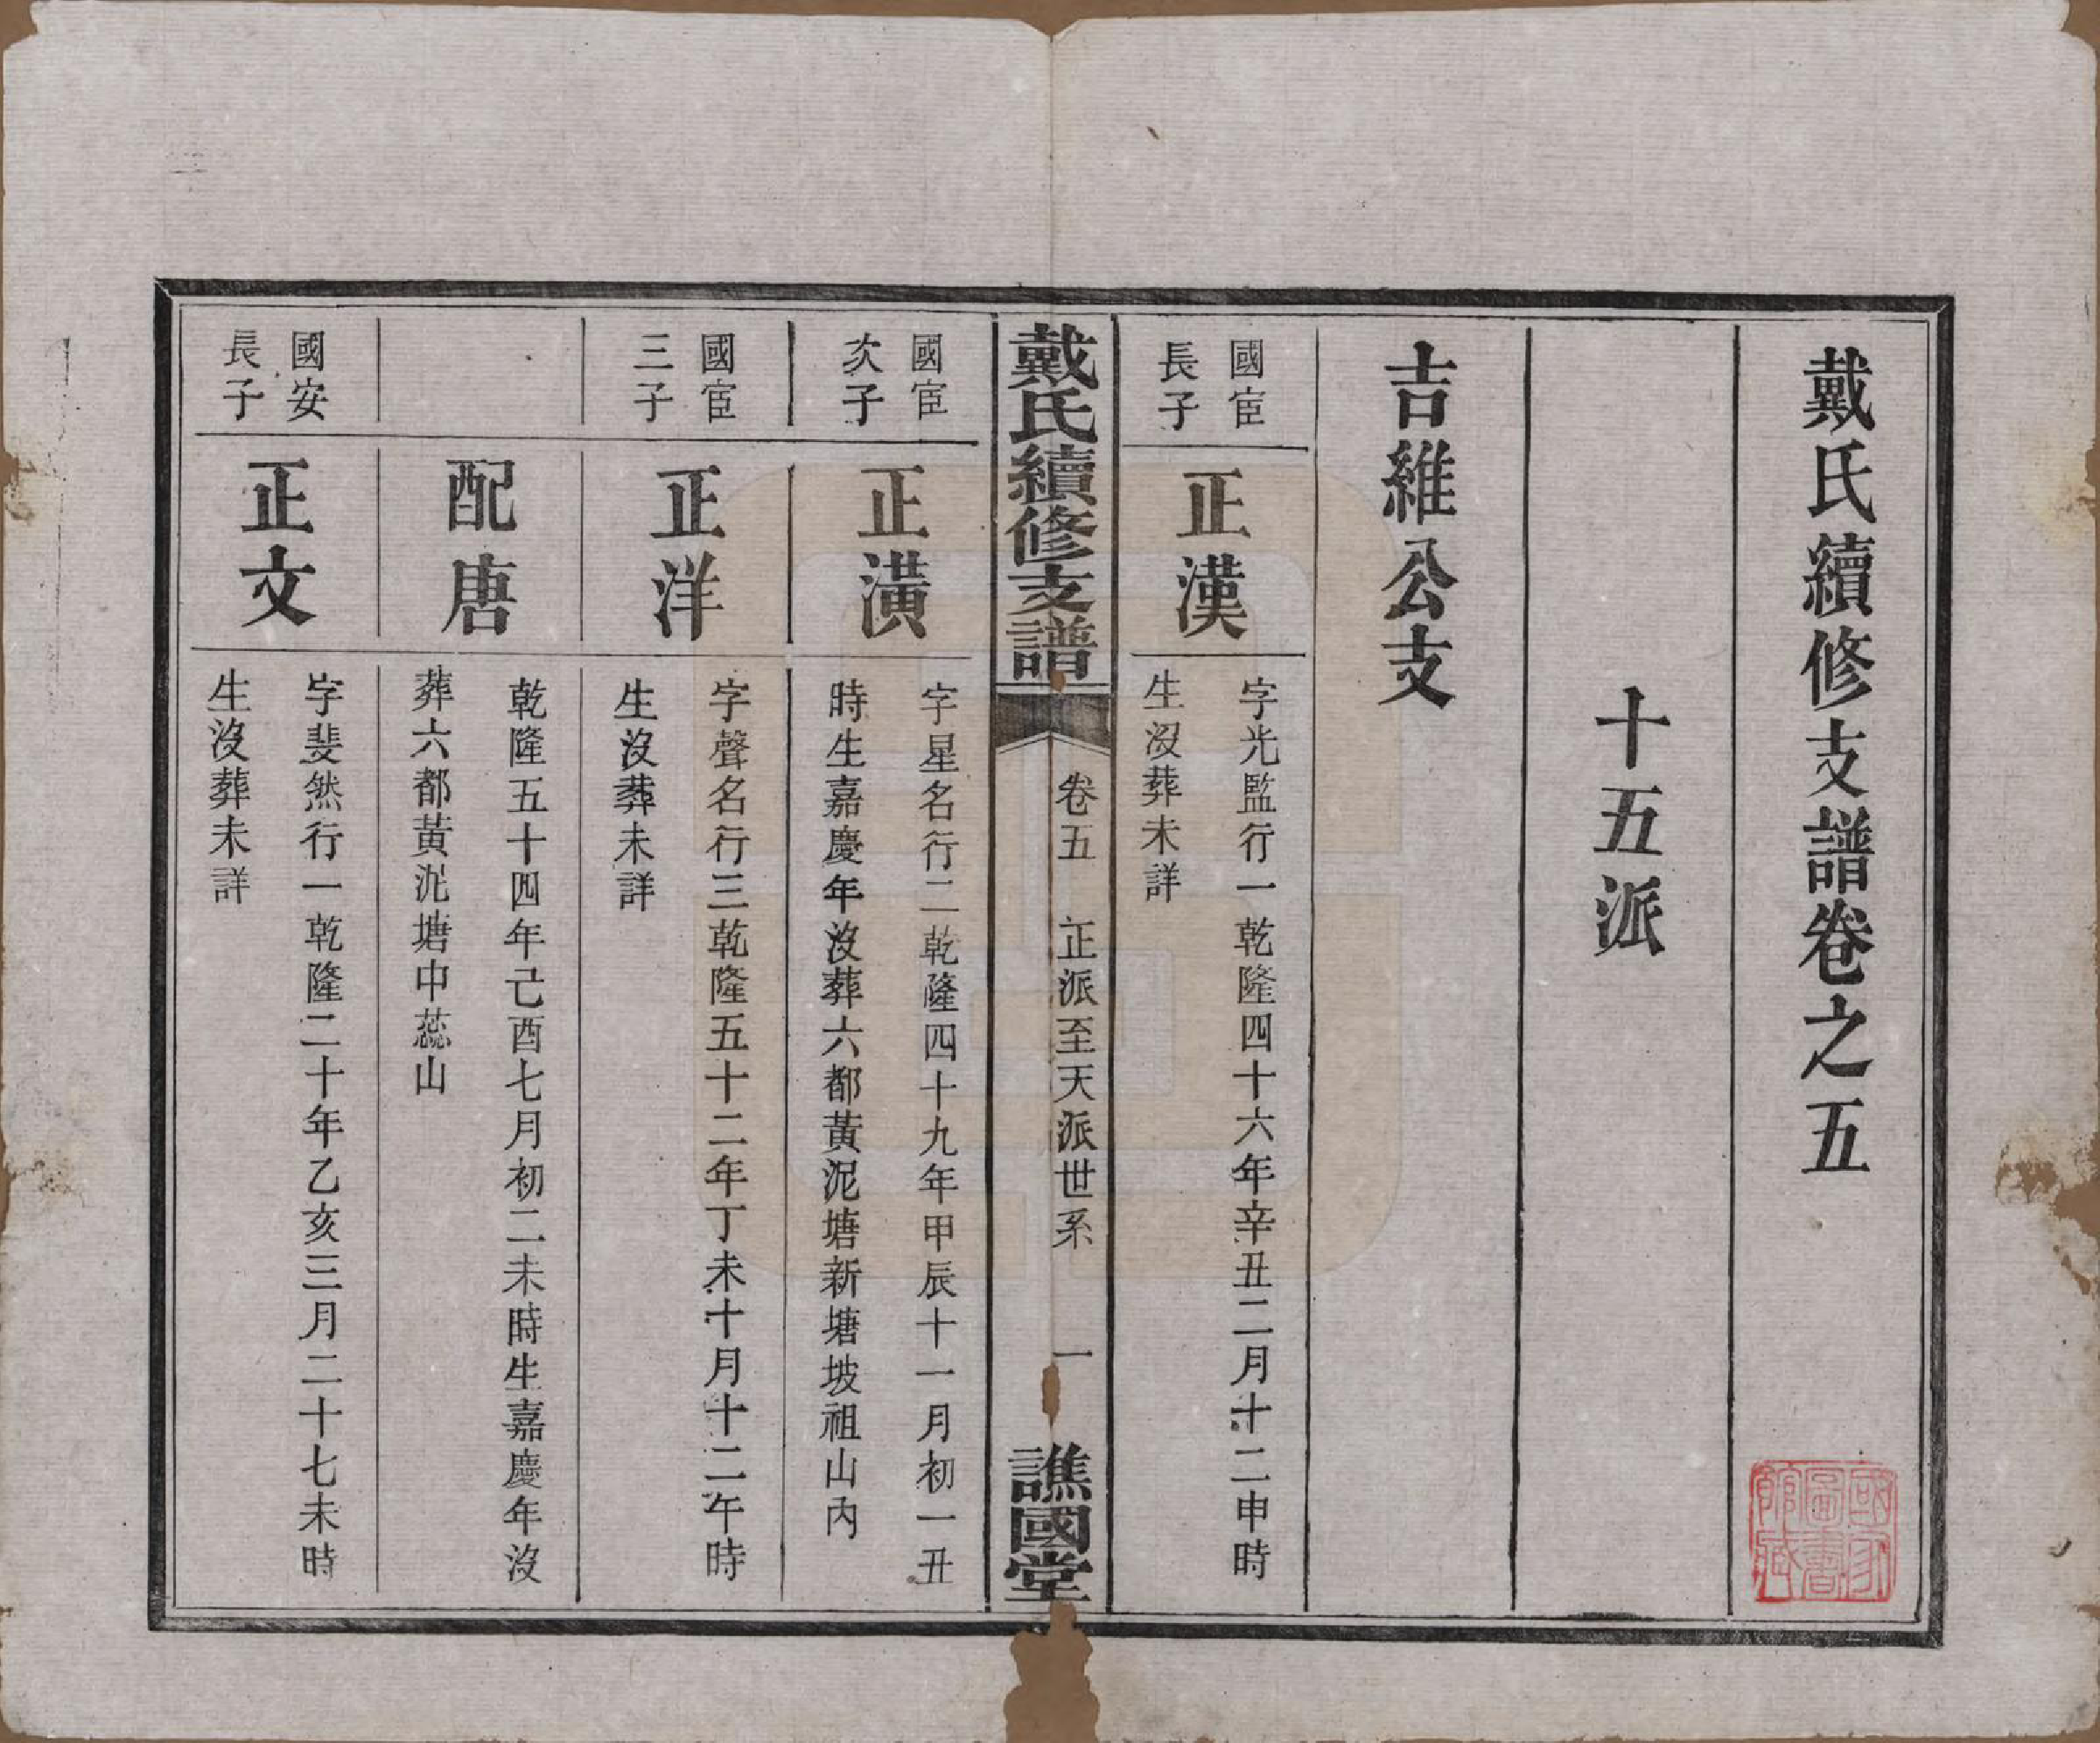 戴氏續修支譜卷之五
國家圖書館藏
十五派
吉維公支
國宦
長子
正漢
字光監行一乾隆四十六年辛丑二月十二申時
生沒葬未詳
戴氏續修支譜
卷五
正派至天派世系
一
譙國堂
國宦
次子
正潢
字星名行二乾隆四十九年甲辰十一月初一丑
時生嘉慶年沒葬六都黃泥塘新塘坡祖山內
國宦
三子
正洋
字聲名行三乾隆五十二年丁未十月十二午時
生沒葬未詳
配唐
乾隆五十四年己酉七月初二未時生嘉慶年沒
葬六都黃泥塘中蕊山
國安
長子
正文
字斐然行一乾隆二十年乙亥三月二十七未時
生沒葬未詳